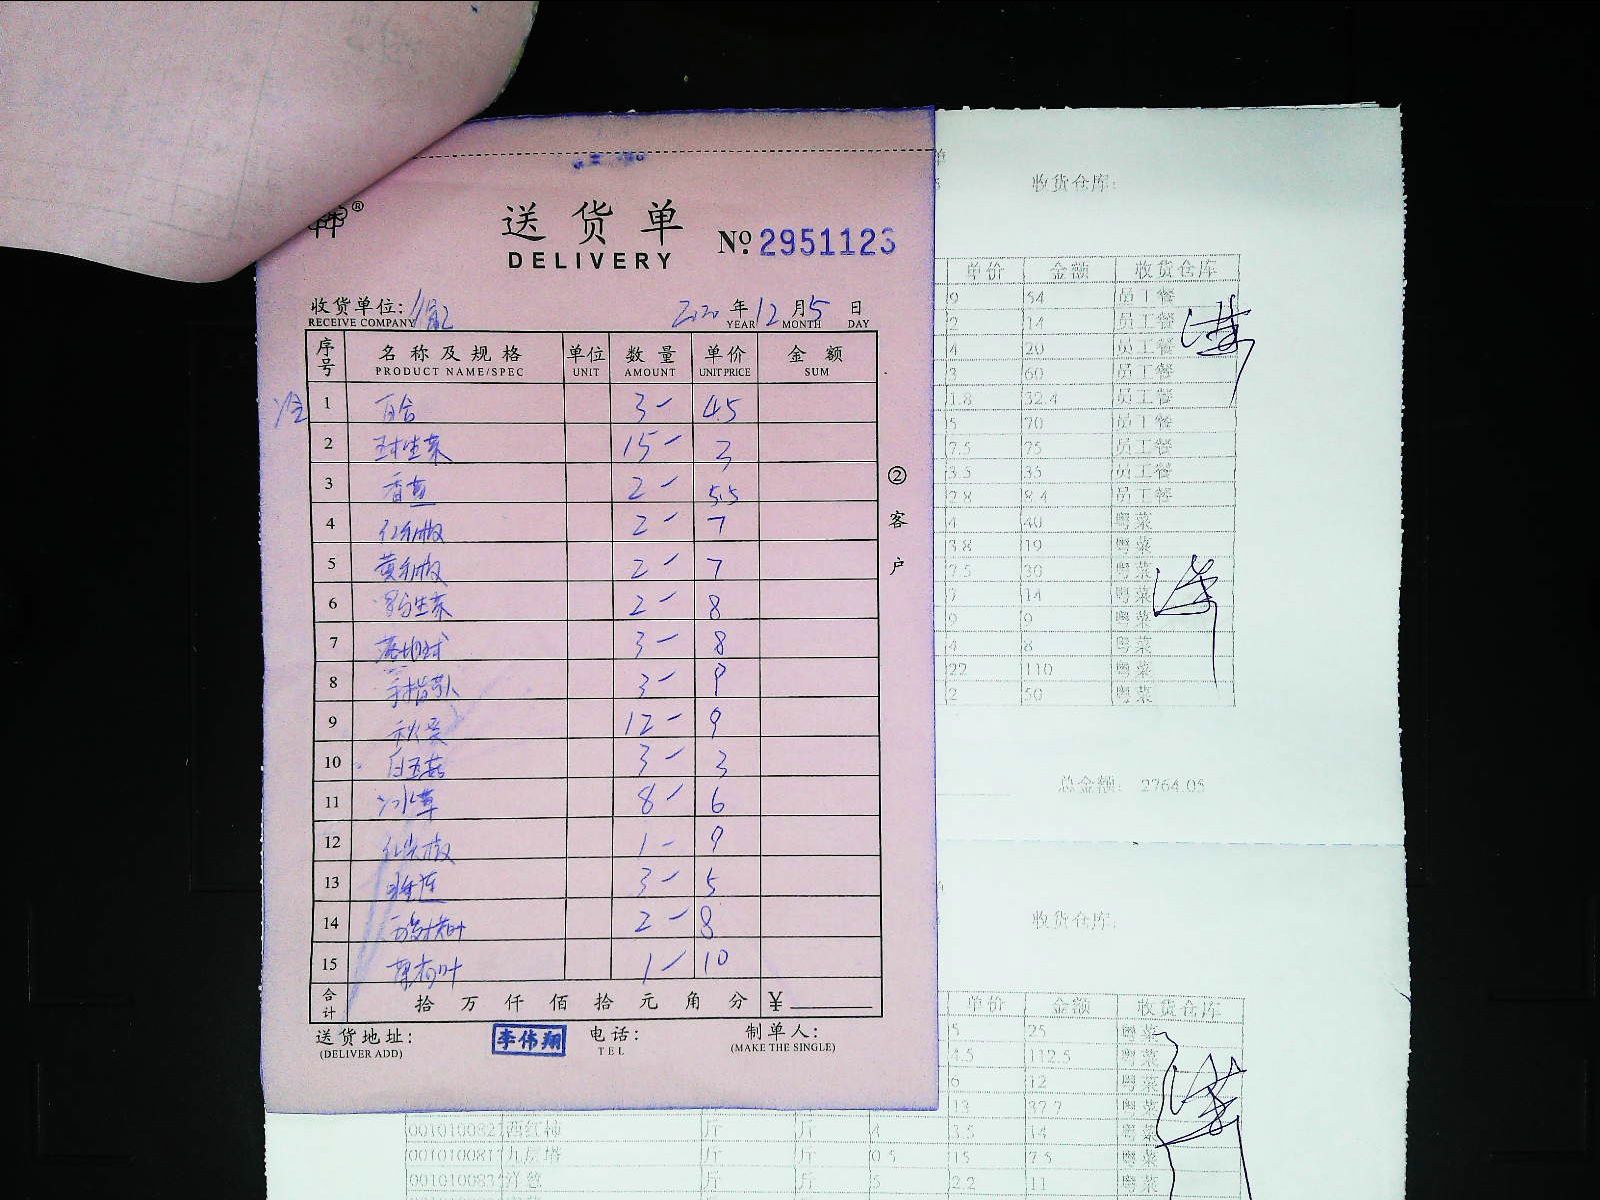 送货单
DELIVERY
№ 2951123
收货单位:
RECEIVE COMPANY
2020 年 12 月 5 日
YEAR MONTH DAY
序号 名称及规格 单位 数量 单价 金额
PRODUCT NAME/SPEC UNIT AMOUNT UNIT PRICE SUM
冷
1 百合 3- 45
2 球生菜 15- 3
3 香芹 2- 5.5
4 红彩椒 2- 7
5 黄彩椒 2- 7
6 罗马生菜 2- 8
7 3- 8
8 手指萝卜 3- 9
9 秋葵 12- 9
10 白玉菇 3- 3
11 冰草 8- 6
12 红尖椒 1- 9
13 3- 5
14 2- 8
15 1- 10
合计 拾 万 仟 佰 拾 元 角 分 ¥
②客户
送货地址:
(DELIVER ADD)
李伟翔
电话:
TEL
制单人:
(MAKE THE SINGLE)
收货仓库:
单价 金额 收货仓库
9 54 员工餐
2 14 员工餐
4 20 员工餐
3 60 员工餐
1.8 32.4 员工餐
5 70 员工餐
7.5 75 员工餐
3.5 35 员工餐
2.8 8.4 员工餐
4 40 粤菜
3.8 19 粤菜
7.5 30 粤菜
7 14 粤菜
9 9 粤菜
4 8 粤菜
22 110 粤菜
2 50 粤菜
总金额: 2764.05
收货仓库:
单价 金额 收货仓库
5 25 粤菜
4.5 112.5 粤菜
6 12 粤菜
13 37.7 粤菜
0010100827 西红柿 斤 斤 4 3.5 14 粤菜
0010100817 九层塔 斤 斤 0.5 15 7.5 粤菜
001010083 洋葱 斤 斤 5 2.2 11 粤菜